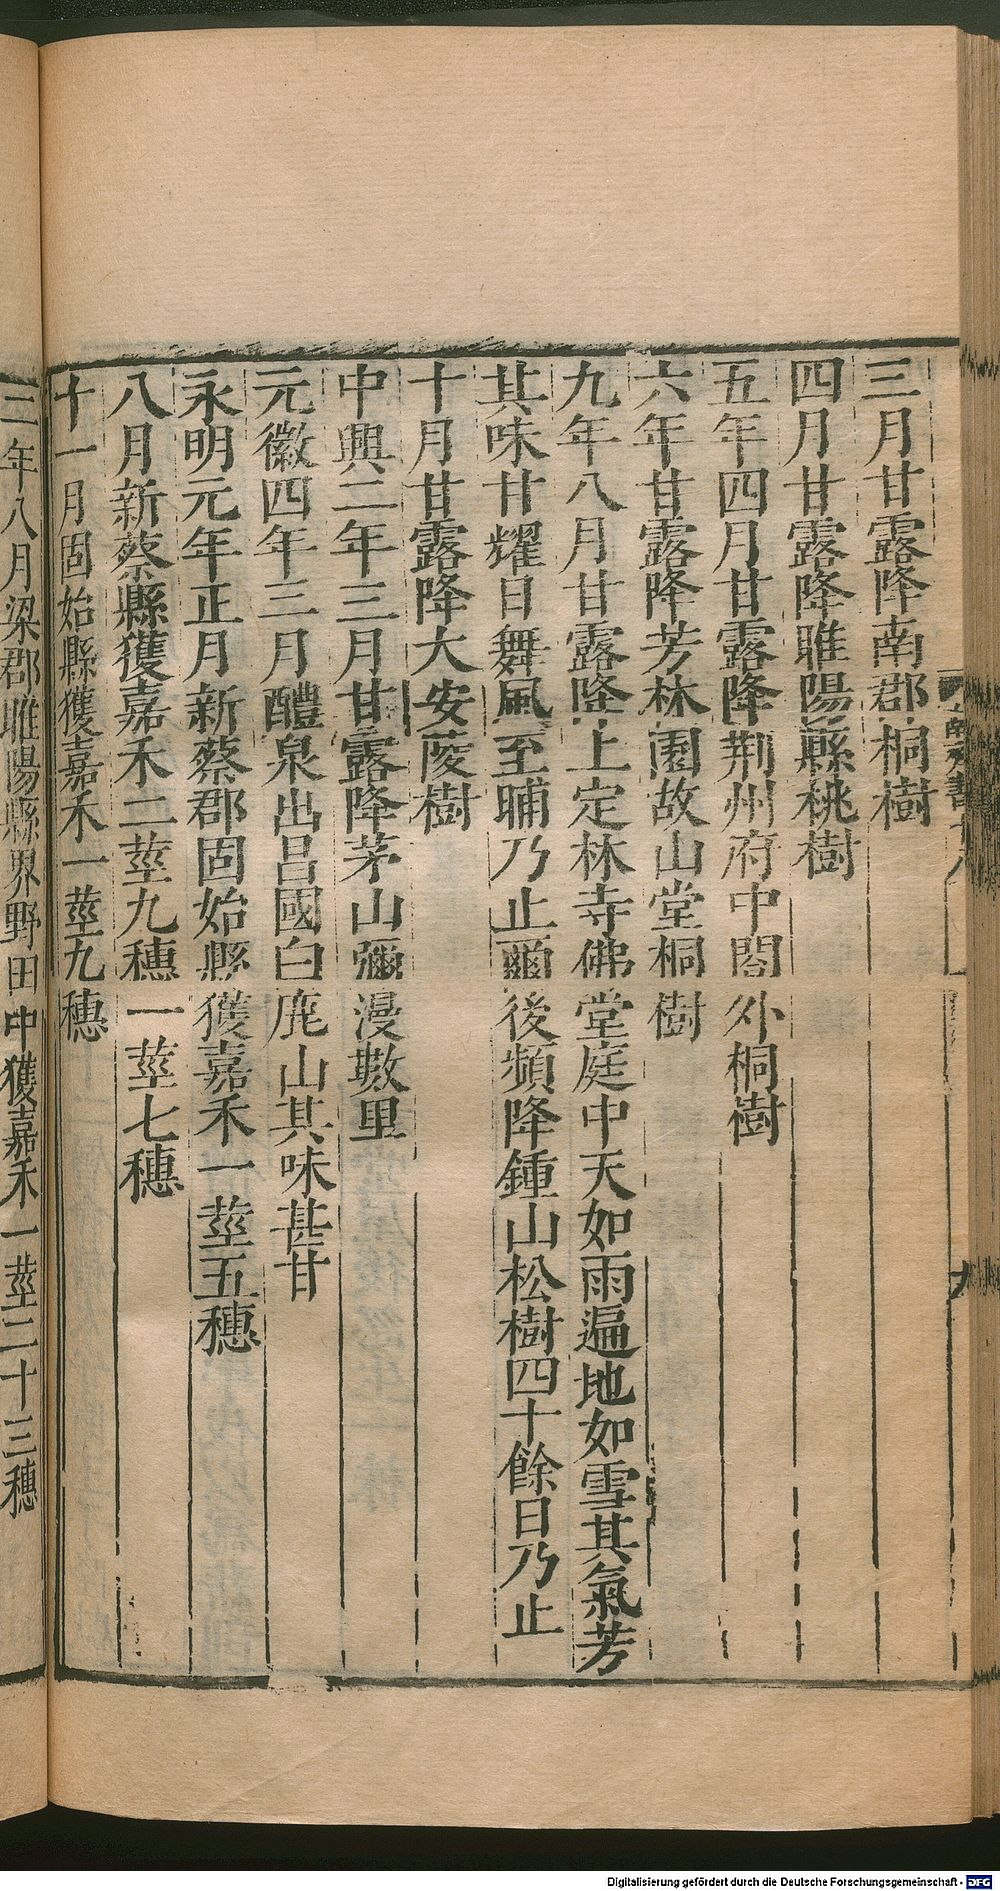 三月甘露降南郡桐樹
四月甘露降睢陽縣桃樹
五年四月甘露降荆州府中閤外桐樹
六年甘露降芳林園故山堂桐樹
九年八月甘露降上定林寺佛堂庭中天如雨遍地如雪其氣芳
其味甘耀日舞風至晡乃止爾後頻降鍾山松樹四十餘日乃止
十月甘露降大安陵樹
中興二年三月甘露降茅山彌漫數里
元徽四年三月醴泉出昌國白鹿山其味甚甘
永明元年正月新蔡郡固始縣獲嘉禾一莖五穗
八月新蔡縣獲嘉禾二莖九穗一莖七穗
十一月固始縣獲嘉禾一莖九穗
二年八月梁郡睢陽縣界野田中獲嘉禾一莖二十三穗
Digitalisierung gefördert durch die Deutsche Forschungsgemeinschaft - DFG